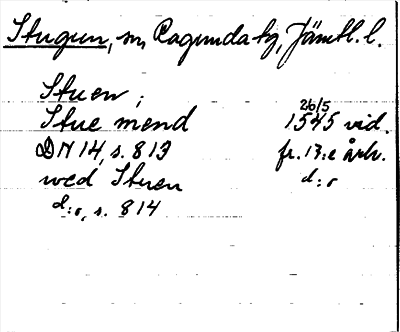 Stugun, sn, Ragunda tg, Jämtl. l.
Stuen;
26/5
Stue mend 1545 vid.
DN 14, s. 813 fr. 13:e årh.
wed Stuen d:o
d:o, s. 814